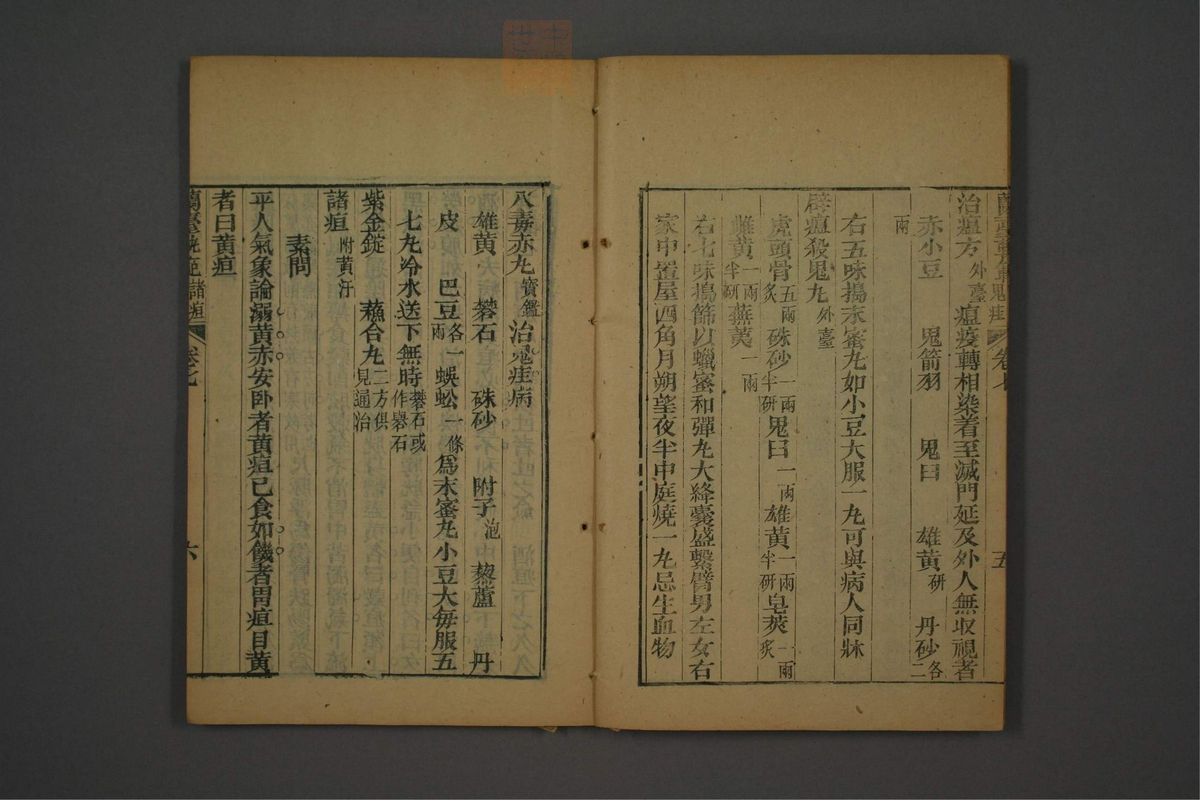 治瘟方外臺瘟疫轉相染着至滅門延及外人無収視者
赤小豆 鬼箭羽 鬼臼 雄黄研 丹砂各二
兩
右五味搗末蜜丸如小豆大服一丸可與病人同牀
辟瘟殺鬼丸外臺
虎頭骨五兩炙 硃砂一兩半研 鬼臼一兩 雄黄一兩半研 皂莢一兩炙
雌黄一兩半研 蕪荑一兩
右七味搗篩以蠟蜜和彈丸大絳囊盛繫臂男左女右
家中置屋四角月朔望夜半中庭燒一丸忌生血物
五
八毒赤丸寶鑑治鬼疰病
雄黄 礬石 硃砂 附子泡 藜蘆 丹
皮 巴豆各一兩 蜈蚣一條爲末蜜丸小豆大每服五
七丸冷水送下無時礬石或作礜石
紫金錠 蘓合丸二方俱見通治
諸疸附黄汗
素問
平人氣象論溺黄赤安卧者黄疸已食如饑者胃疸目黄
者曰黄疸
蘭臺軌範諸疸 卷七 六